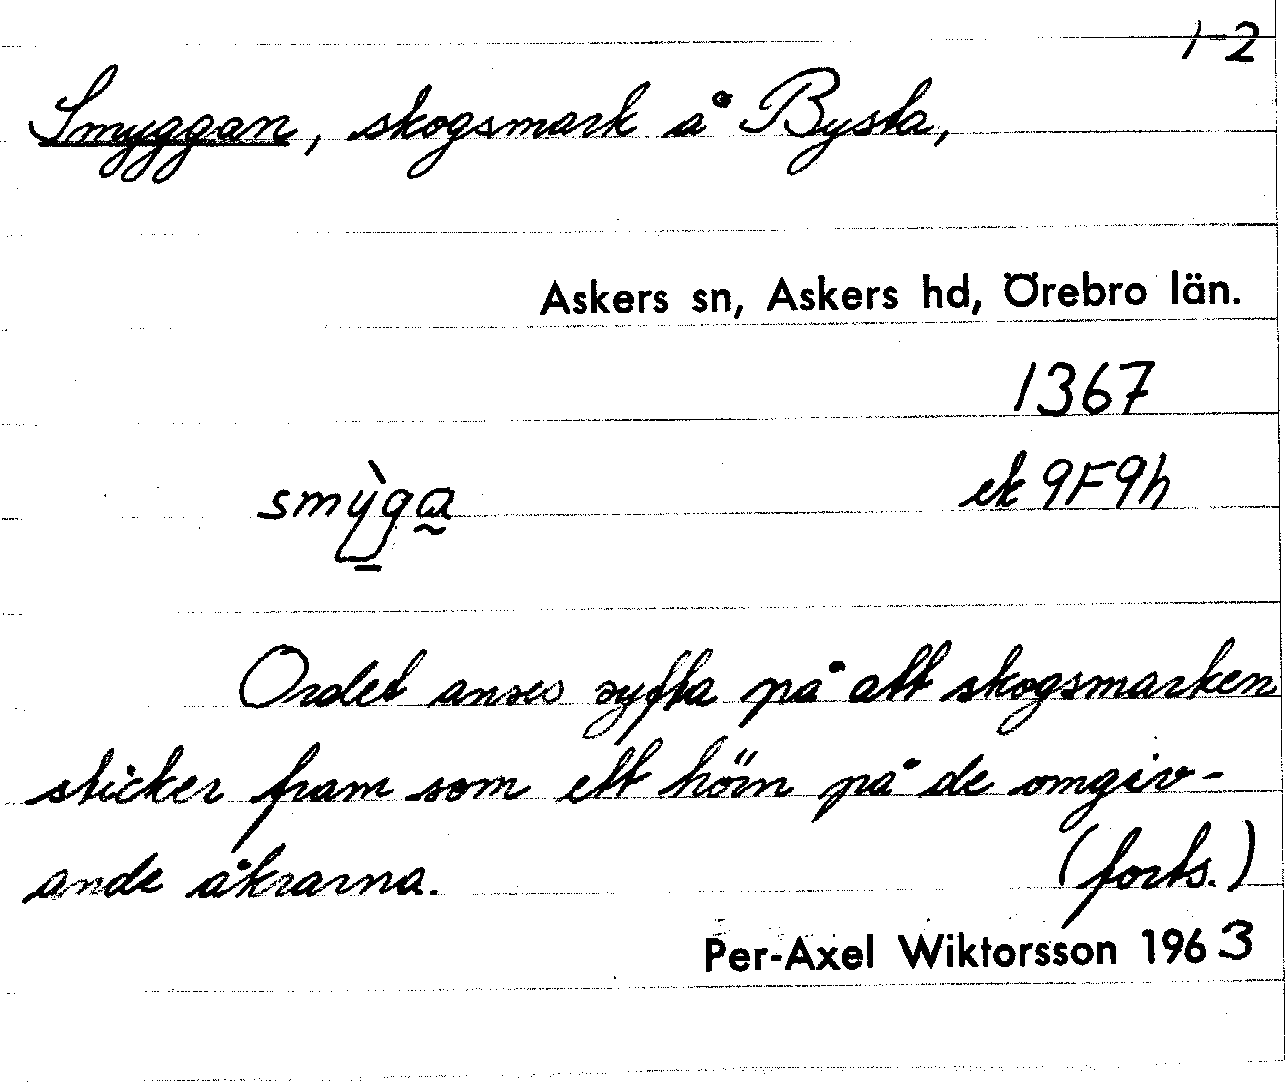 1-2
Smyggan, skogsmark å Bysta,
Askers sn, Askers hd, Örebro län.
1367
smỳga
ek 9F9h
Ordet anses syfta på att skogsmarken
sticker fram som ett hörn på de omgiv-
ande åkrarna.
(forts.)
Per-Axel Wiktorsson 1963